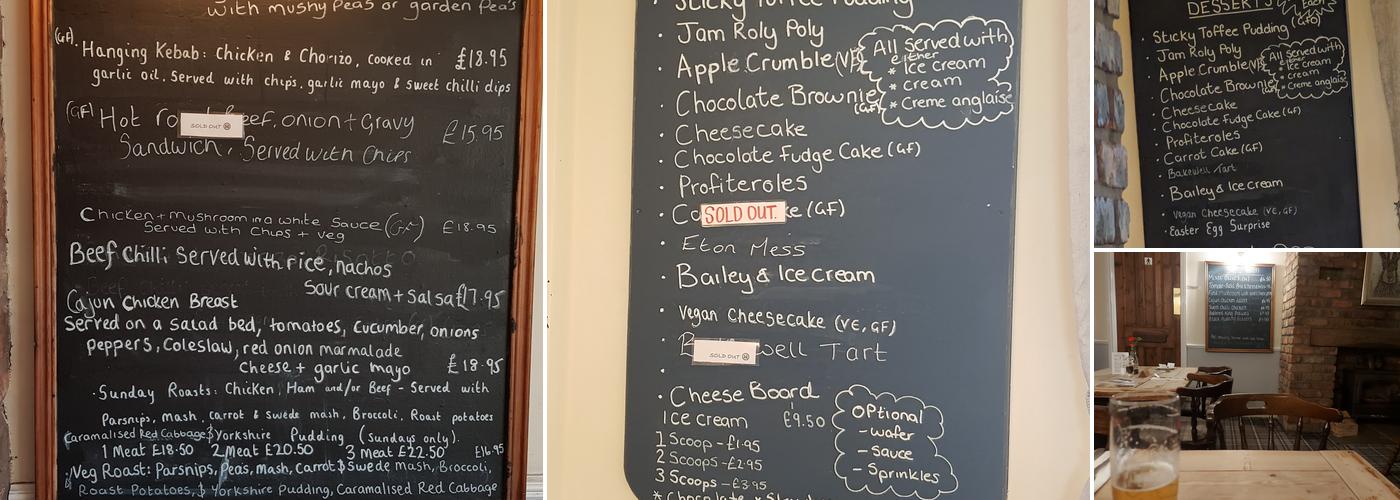 with mushy peas or garden peas
(GF). Hanging Kebab: Chicken & Chorizo, cooked in £18.95
garlic oil. Served with chips, garlic mayo & sweet chilli dips
(GF) Hot ro SOLD OUT eef, onion + Gravy £15.95
Sandwich, Served with Chips
Chicken + Mushroom in a white Sauce (GF) £18.95
Served with Chips + veg
Beef Chilli Served with rice, nachos
Sour cream + Salsa £17.95
Cajun Chicken Breast
Served on a salad bed, tomatoes, cucumber, onions
peppers, Coleslaw, red onion marmalade
cheese + garlic mayo £18.95
· Sunday Roasts: Chicken, Ham and/or Beef - Served with
Parsnips, mash, carrot & swede mash, Broccoli, Roast potatoes
Caramalised Red Cabbage & Yorkshire Pudding (Sundays only).
1 Meat £18.50 2 Meat £20.50 3 Meat £22.50 £16.95
· Veg Roast: Parsnips, Peas, Mash, Carrot & Swede Mash, Broccoli,
Roast Potatoes, & Yorkshire Pudding, Caramalised Red Cabbage
Sticky Toffee Pudding
· Jam Roly Poly
· Apple Crumble
· Chocolate Brownie (GF)
· Cheesecake
· Chocolate Fudge Cake (GF)
· Profiteroles
· Ca SOLD OUT. ke (GF)
· Eton Mess
· Bailey's Ice cream
· Vegan Cheesecake (VE, GF)
· B SOLD OUT well Tart
·
· Cheese Board
£9.50
Ice cream
1 Scoop - £1.95
2 Scoops - £2.95
3 Scoops - £3.95
All Served with
either
* Ice cream
* cream
* Creme anglaise
Optional
- wafer
- Sauce
- Sprinkles
DESSERTS
Each
(GF)
· Sticky Toffee Pudding
Jam Roly Poly
· Apple Crumble
· Chocolate Brownie
· Cheesecake
· Chocolate Fudge Cake (GF)
· Profiteroles
· Carrot Cake (GF)
· Bakewell Tart
· Bailey's Ice cream
· Vegan Cheesecake (VE, GF)
· Easter Egg Surprise
All Served with
either
* Ice cream
* cream
* Creme anglaise